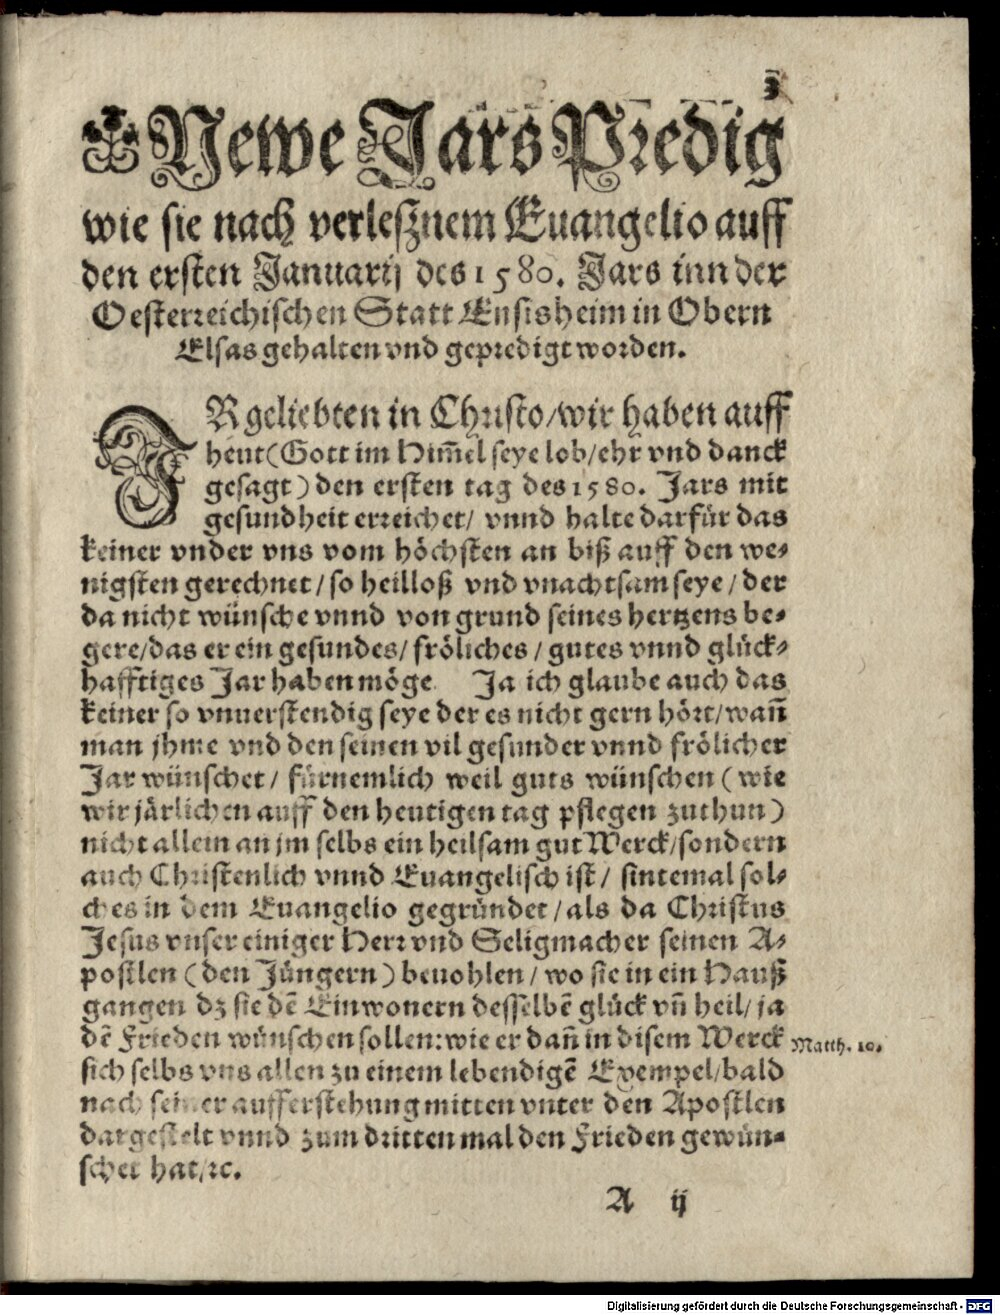 3
Newe Jars Predig
wie sie nach verleßnem Euangelio auff
den ersten Januarij des 1580. Jars inn der
Oesterreichischen Statt Ensisheim in Obern
Elsas gehalten vnd gepredigt worden.
IR geliebten in Christo/wir haben auff
heut (Gott im Him̃el seye lob/ehr vnd danck
gesagt) den ersten tag des 1580. Jars mit
gesundheit erreichet/ vnnd halte darfür das
keiner vnder vns vom höchsten an biß auff den we-
nigsten gerechnet/so heilloß vnd vnachtsam seye/der
da nicht wünsche vnnd von grund seines hertzens be-
gere/das er ein gesundes/ fröliches/ gutes vnnd glück-
hafftiges Jar haben möge. Ja ich glaube auch das
keiner so vnuerstendig seye der es nicht gern hört/wañ
man jhme vnd den seinen vil gesunder vnnd frölicher
Jar wünschet/ fürnemlich weil guts wünschen (wie
wir järlichen auff den heutigen tag pflegen zuthun)
nicht allein an jm selbs ein heilsam gut Werck/sondern
auch Christenlich vnnd Euangelisch ist/ sintemal sol-
ches in dem Euangelio gegründet/als da Christus
Jesus vnser einiger Herr vnd Seligmacher seinen A-
postlen (den Jüngern) beuohlen/ wo sie in ein Hauß
gangen dz sie dẽ Einwonern desselbẽ glück vñ heil/ ja
dẽ Frieden wünschen sollen: wie er dañ in disem Werck
Matth. 10.
sich selbs vns allen zu einem lebendigẽ Exempel/bald
nach seiner aufferstehung mitten vnter den Apostlen
dargestelt vnnd zum dritten mal den Frieden gewün-
schet hat/ꝛc.
A ij
Digitalisierung gefördert durch die Deutsche Forschungsgemeinschaft - DFG